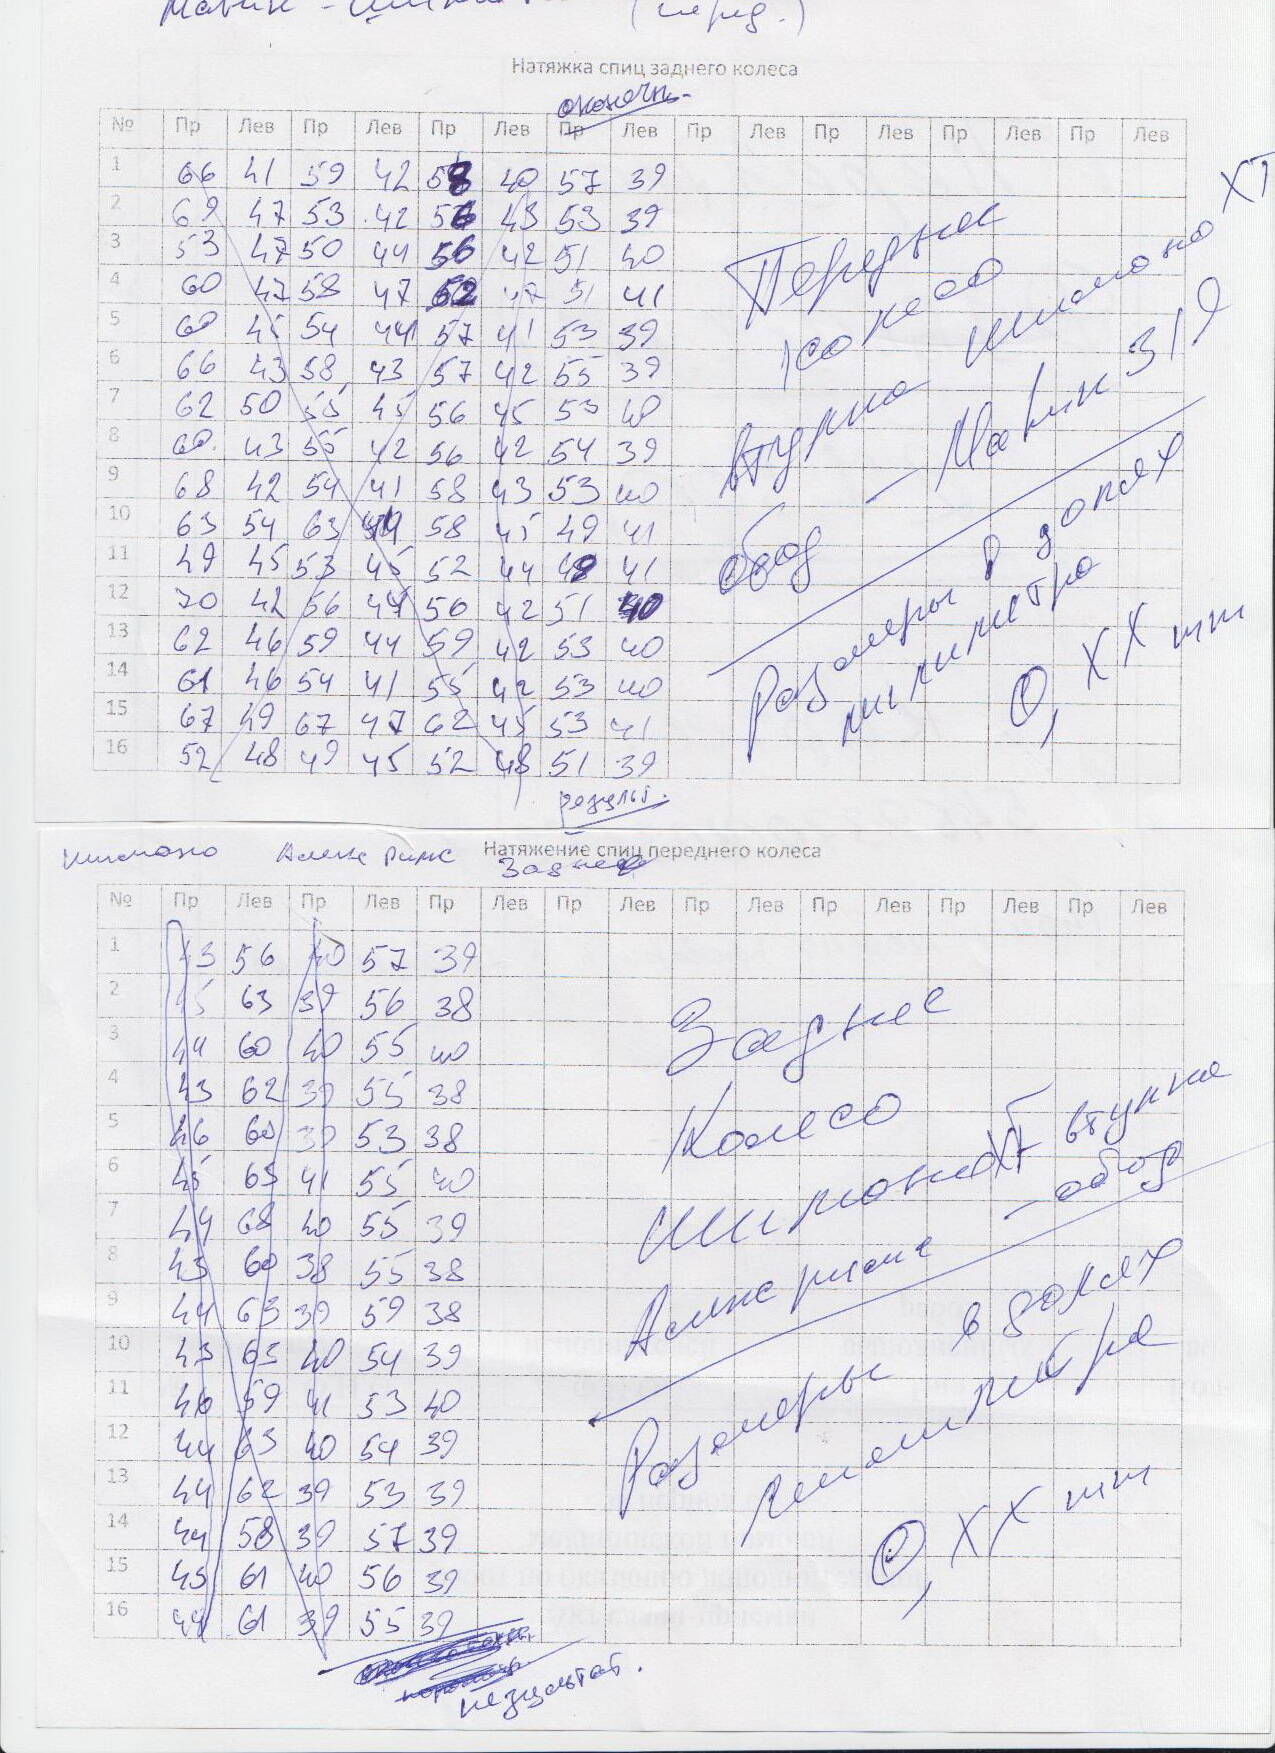 Мавик - Шимано (перед.)
Натяжка спиц заднего колеса
окончн.
№ Пр Лев Пр Лев Пр Лев Пр Лев Пр Лев Пр Лев Пр Лев Пр Лев
1 66 41 59 42 58 40 57 39
2 69 47 53 42 56 43 53 39
3 53 47 50 44 56 42 51 40
4 60 47 58 47 62 47 51 41
5 60 45 54 44 57 41 53 39
6 66 43 58 43 57 42 55 39
7 62 50 55 45 56 45 53 40
8 60 43 55 42 56 42 54 39
9 68 42 54 41 58 43 53 40
10 63 54 63 49 58 45 49 41
11 49 45 53 45 52 44 49 41
12 70 42 56 44 56 42 51 40
13 62 46 59 44 59 42 53 40
14 61 46 54 41 55 42 53 40
15 67 49 67 47 62 45 53 41
16 52 48 49 45 52 48 51 39
результ.
Переднее
колесо
втулка Шимано XT
обод – Мавик 319
Размеры в долях
миллиметра
0, XX mm
Шимано Алекс Римс Натяжение спиц переднего колеса
Заднее
№ Пр Лев Пр Лев Пр Лев Пр Лев Пр Лев Пр Лев Пр Лев Пр Лев
1 43 56 40 57 39
2 45 63 39 56 38
3 44 60 40 55 40
4 43 62 39 55 38
5 46 60 39 53 38
6 45 65 41 55 40
7 44 68 40 55 39
8 43 60 38 55 38
9 44 63 39 59 38
10 43 65 40 54 39
11 46 59 41 53 40
12 44 63 40 54 39
13 44 62 39 53 39
14 44 58 39 57 39
15 45 61 40 56 39
16 44 61 39 55 39
результат.
Заднее
Колесо
Шимано XT втулка
Алексримс – обод
Размеры в долях
миллиметра
0, XX mm